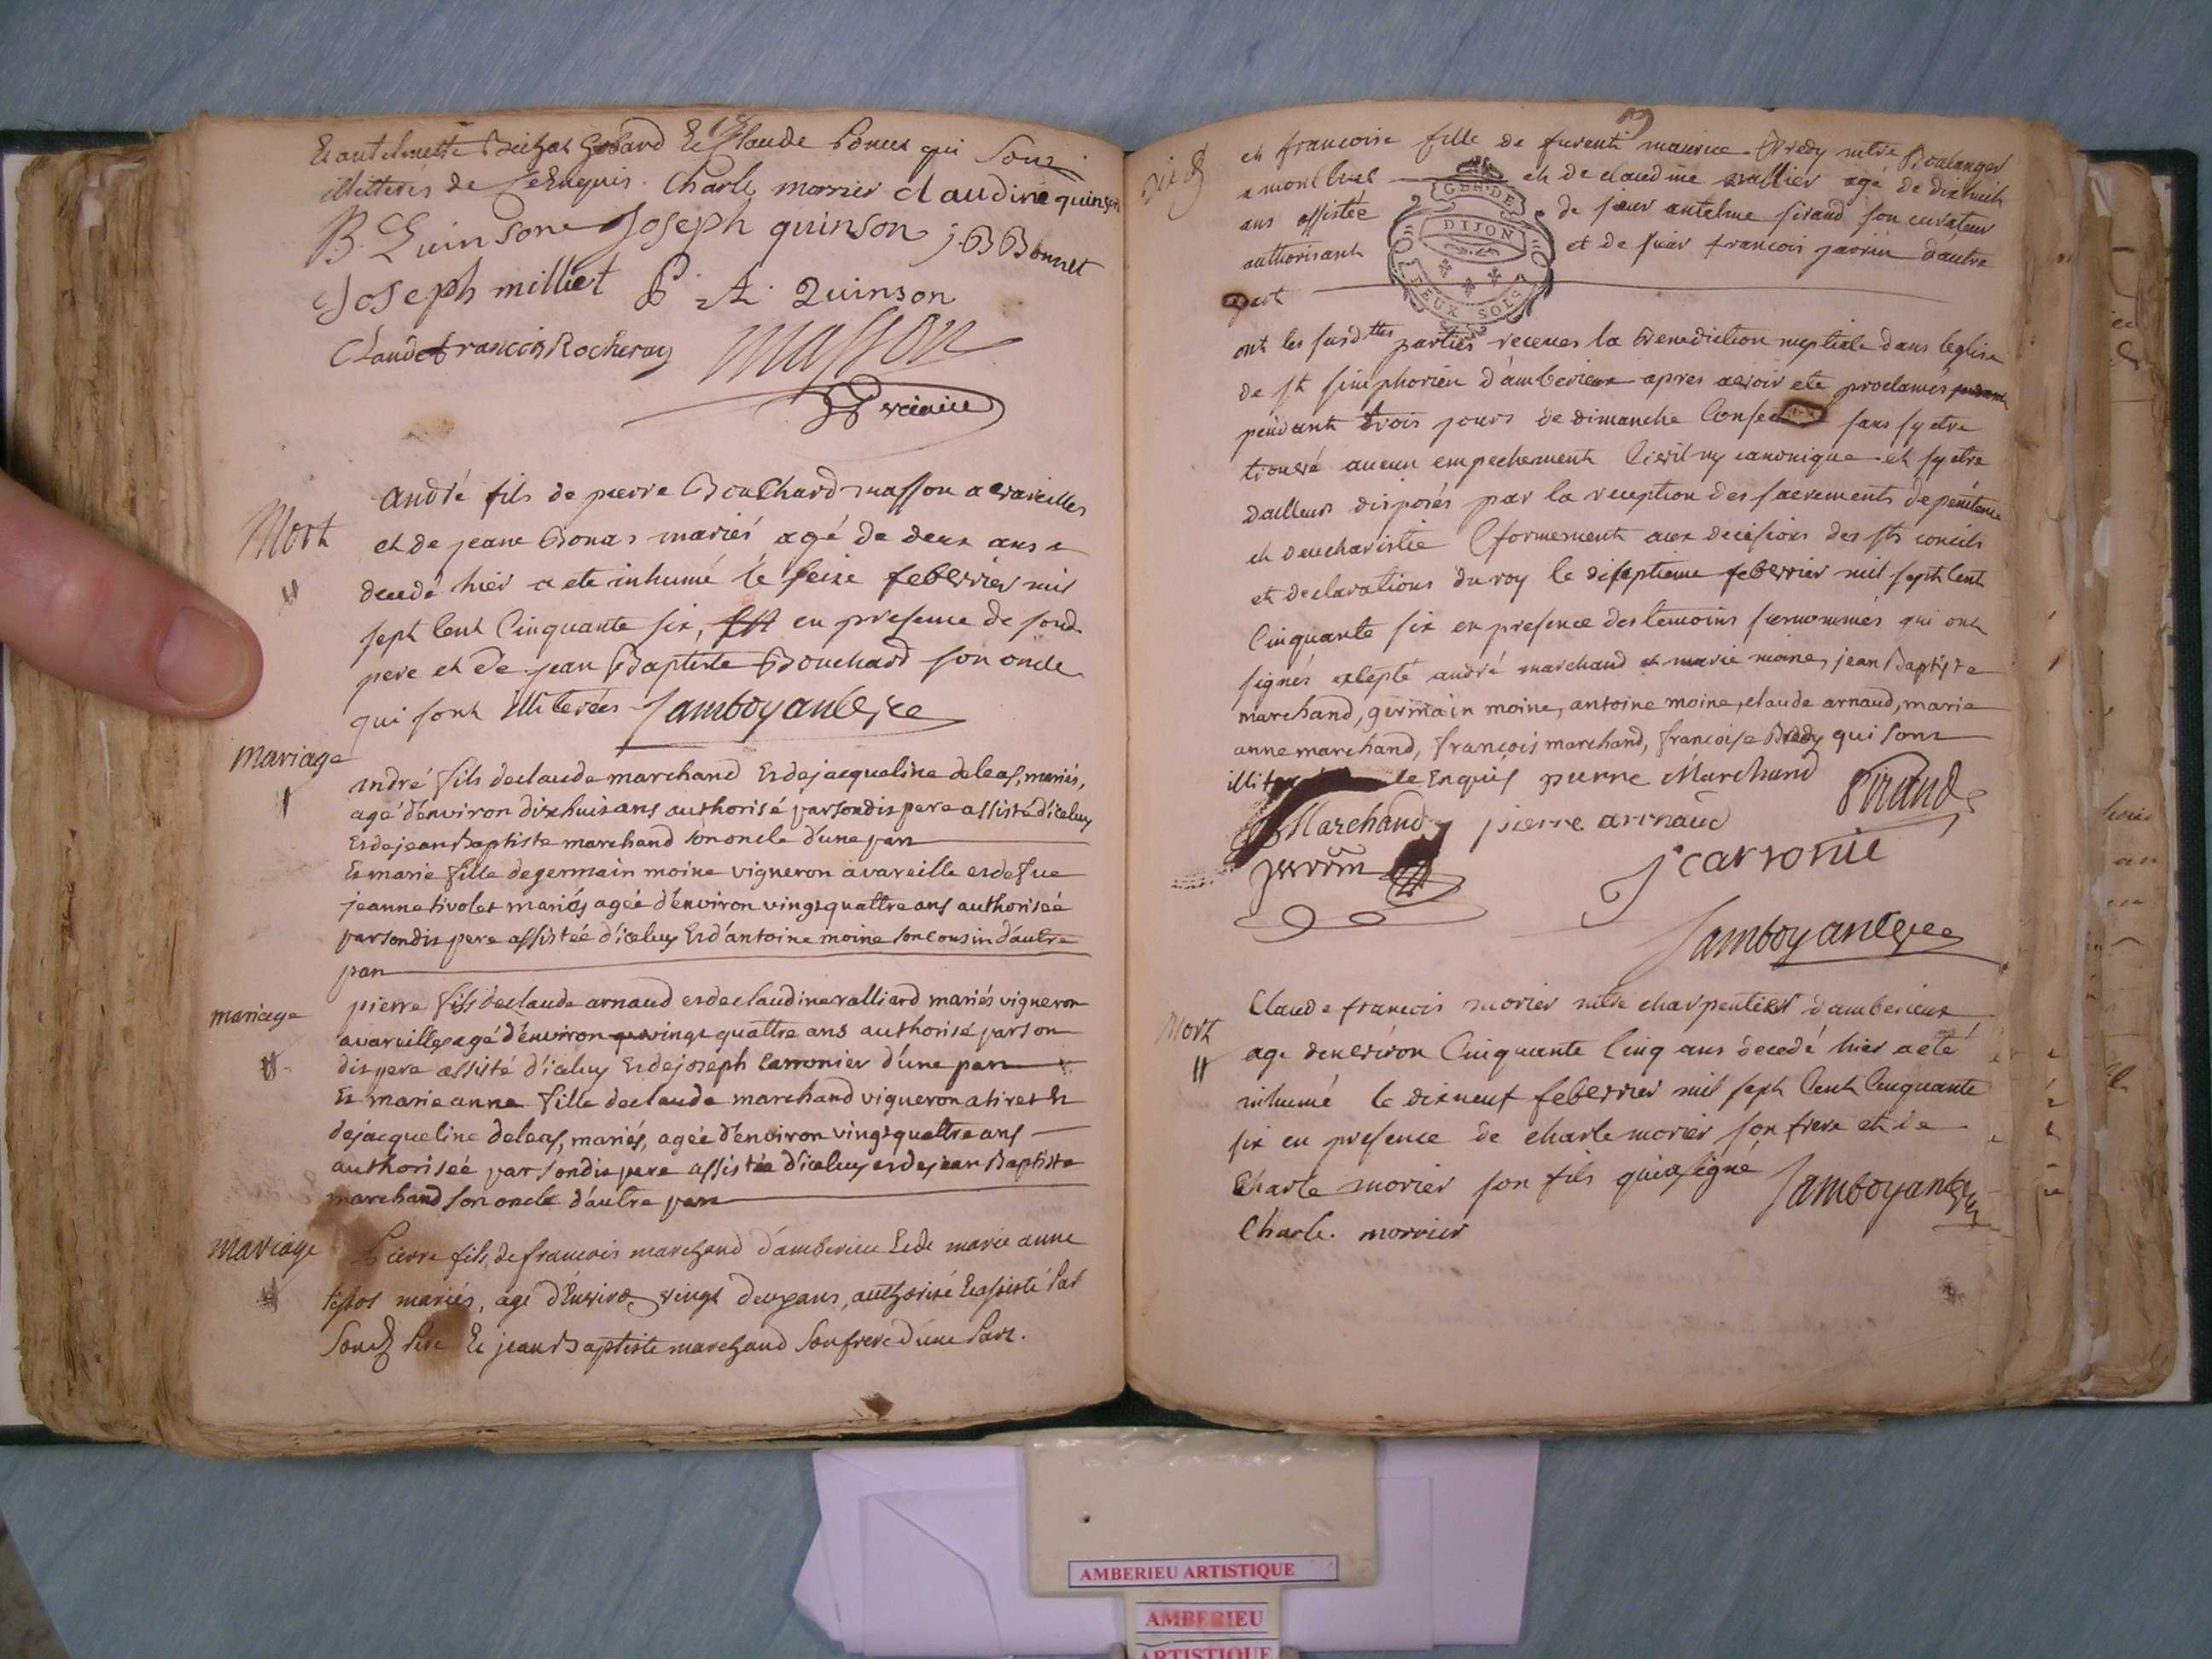 Et antelmette Godard Et Claude qui Sont
illitterés de ce Enquis. Charle morrier claudine quinson
B. Quinson Joseph quinson J B Bonnet
Joseph milliet P. A. Quinson
Claude francois Rocheray Masson
Mort
andré fils de pierre Bouchard masson a vareilles
et de jeane Bonas mariés agé de deux ans
decedé hier a ete inhumé le seize febvrier mil
sept cent Cinquante six, en presence de sond
pere et de jean Baptiste Bouchard son oncle
qui sont illiterées Jamboyant
mariage
andré fils de claude marchand Et de jacqueline deleas, mariés,
agé d'environ dixhuit ans authorisé par son dit pere assisté d'iceluy
Et de jean Baptiste marchand son oncle d'une part
Et marie fille de germain moine vigneron a vareille et de fue
jeanne tivolet mariés ageé d'environ vingt quattre ans authoriseé
par son dit pere assisteé d'iceluy Et d'antoine moine son cousin d'autre
part
mariage
pierre fils de claude arnaud et de claudine ralliard mariés vigneron
a vareilles agé d'environ vingt quattre ans authorisé par son
dit pere assisté d'iceluy Et de joseph carronier d'une part
Et marie anne fille de claude marchand vigneron a tiret Et
de jacqueline deleas, mariés, ageé d'environ vingt quattre ans
authoriseé par son dit pere assisteé d'iceluy et de jean Baptiste
marchand son oncle d'autre part
mariage
Pierre fils de francois marchand d'amberieu Et de marie anne
mariés, agé d'Environ vingt deux ans, authorisé Et assisté Par
Sond Pere Et jean Baptiste marchand Son frere d'une Part.
et francoise fille de maurice Bredy mtre Boulanger
a montluel et de claudine vallier agé de dixhuit
ans assistée de sieur antelme sirand son curateur
authorisant et de sieur francois perrin d'autre
part
GEN. DE
DIJON
DEUX SOLS
ont les susdttes parties receues la Benediction nuptiale dans leglise
de st simphorien d'amberieux apres avoir ete proclamés
pendant trois jours de dimanche sans sy etre
trouvé aucun empechement Civil ny canonique et sy etre
dailleurs disposés par la reception des sacrements de penitence
et deucharistie Cformement aux decisions des sts concils
et declarations du roy le diseptieme febvrier mil sept cent
Cinquante six en presence des temoins surnommés qui ont
signés excepté andré marchand et marie moine, jean Baptiste
marchand, germain moine, antoine moine, claude arnaud, marie
anne marchand, françois marchand, francoise Bredy qui sont
de ce Enquis pierre Marchand Sirand
Marchand pierre arnaud
perrin J carronie
Jamboyant
Mort
Claude francois morier mtre charpentier d'amberieux
age denviron Cinquante Cinq ans decedé hier a eté
inhumé le dixneuf febvrier mil sept Cent Cinquante
six en presence de charle morier son frere et de
Charle morier son fils qui a signé Jamboyant
Charle. morrier
AMBERIEU ARTISTIQUE
AMBERIEU
ARTISTIQUE